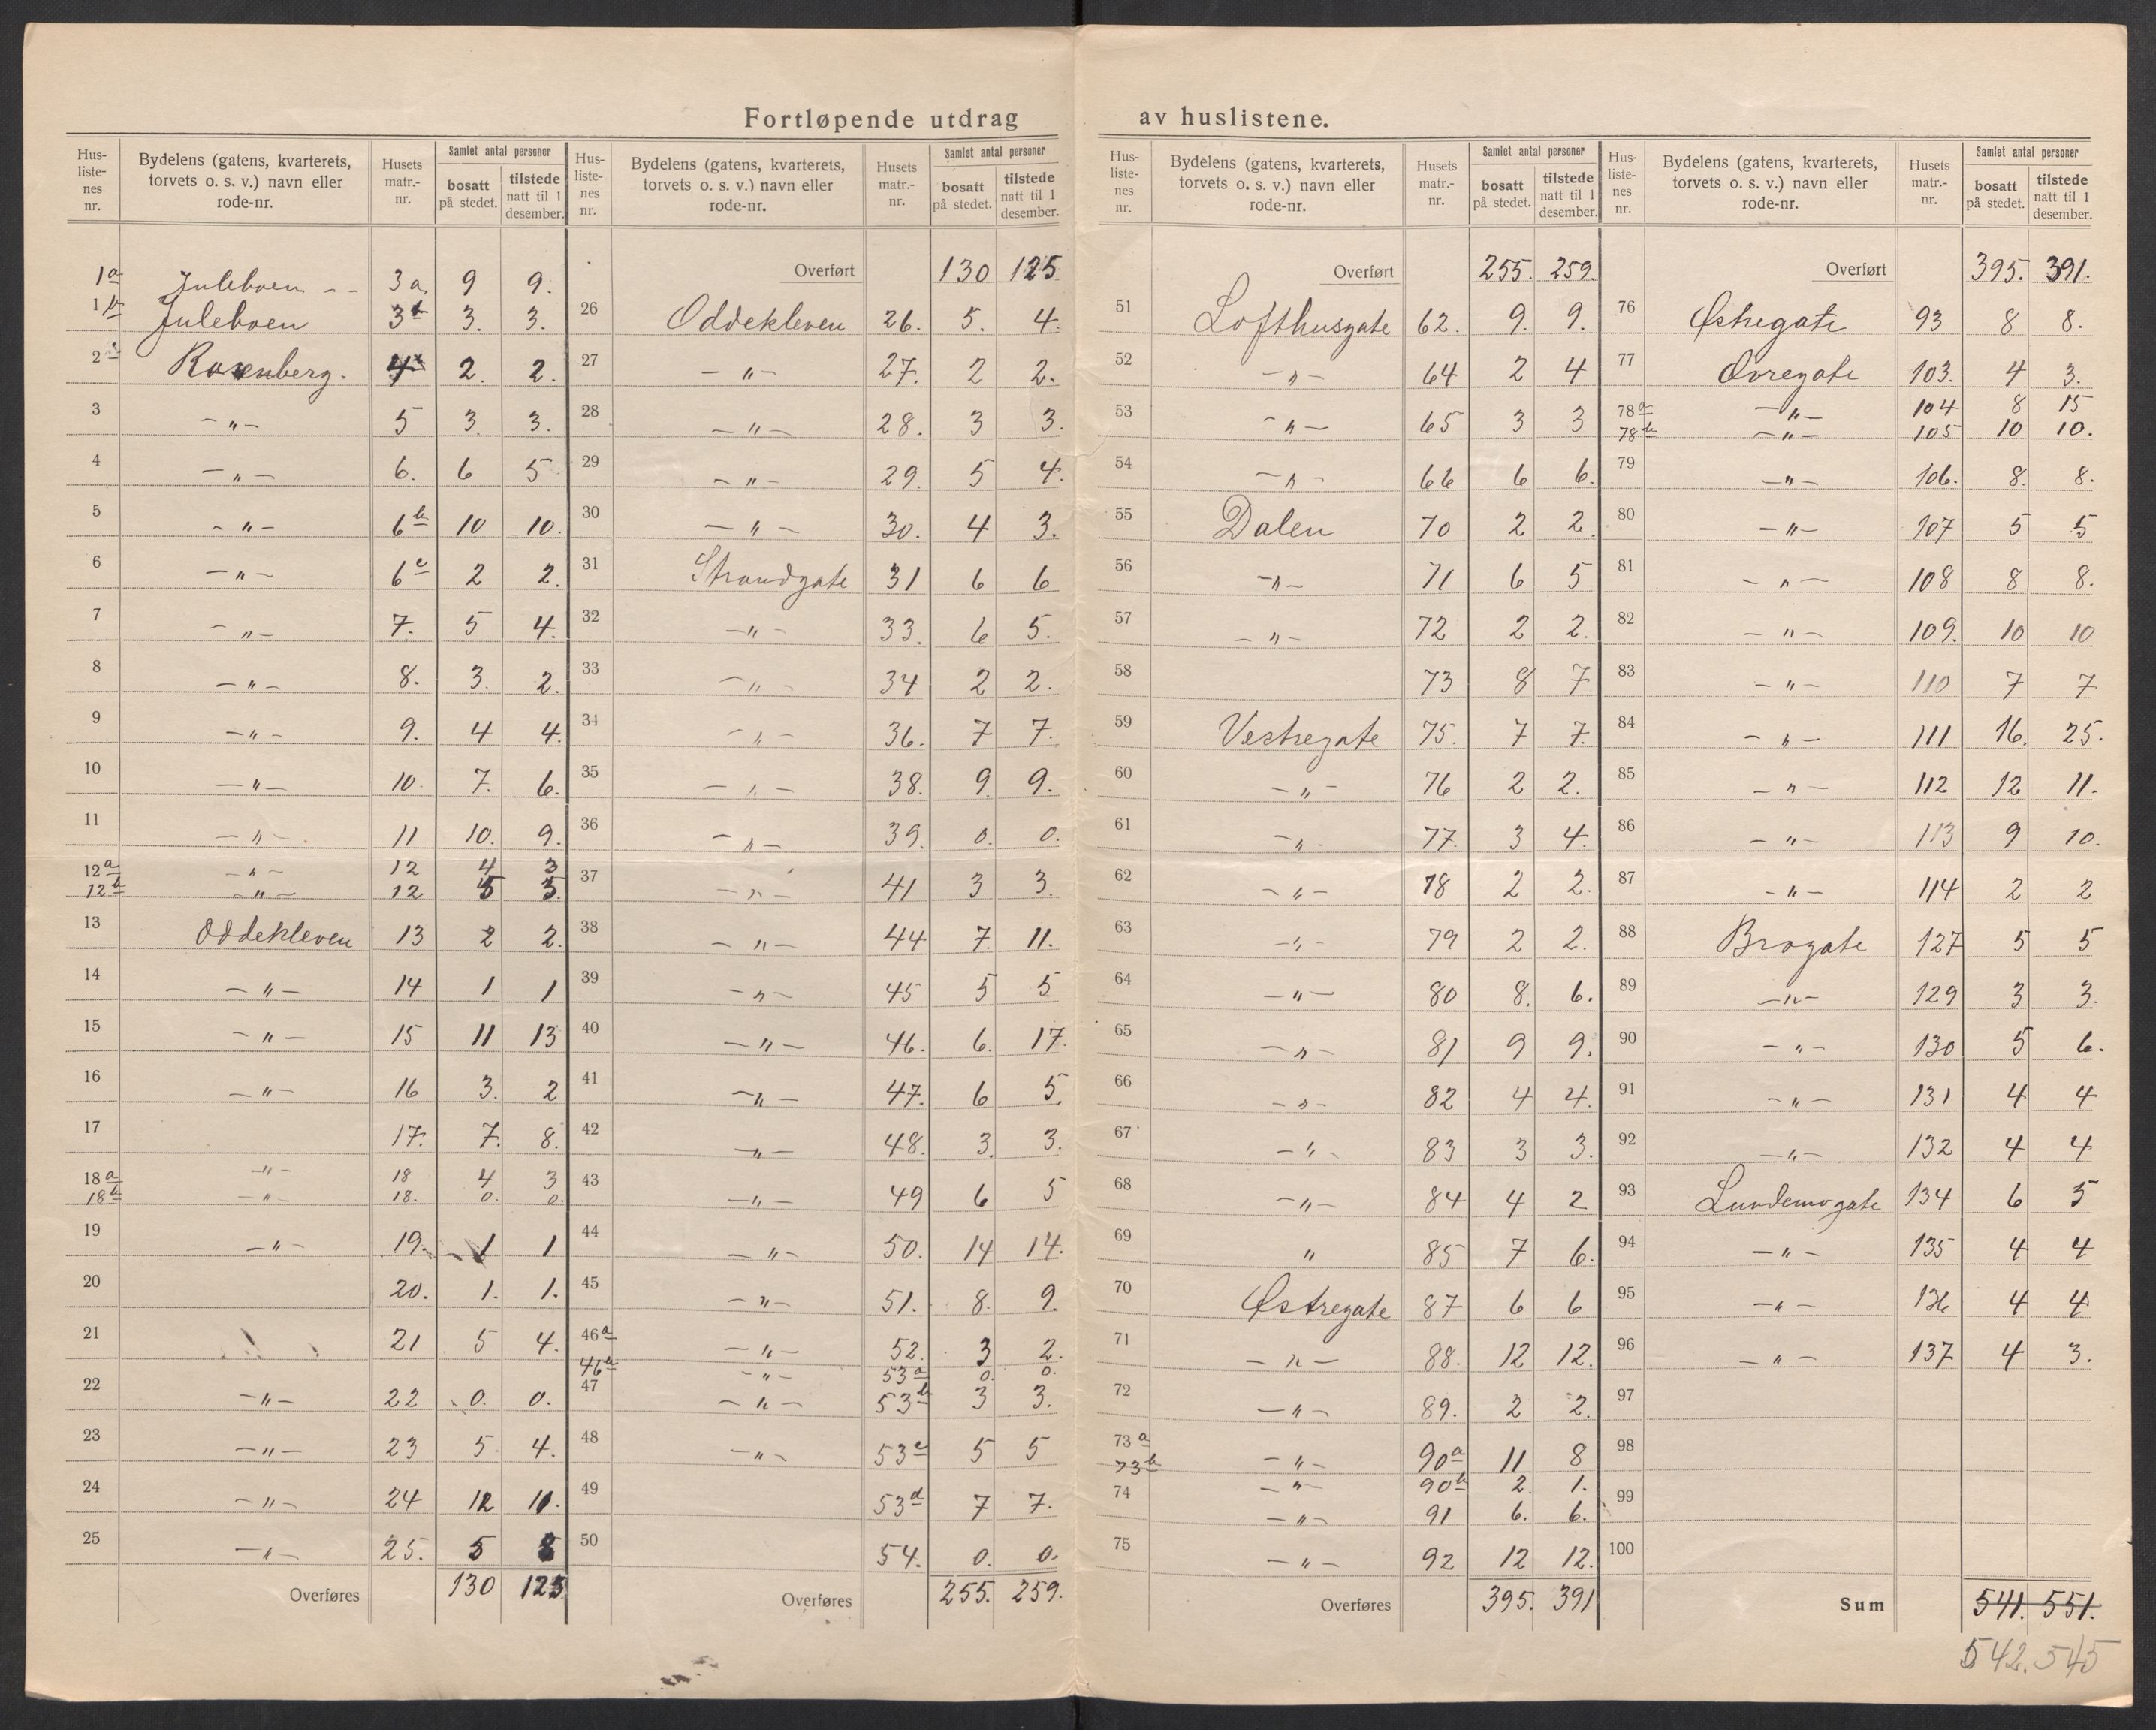 Fortløpende utdrag av huslistene.
Hus-listenes nr. | Bydelens (gatens, kvarterets, torvets o. s. v.) navn eller rode-nr. | Husets matr.-nr. | Samlet antal personer bosatt på stedet. | tilstede natt til 1 desember.
1a Juleboen - - 3a 9 9.
1b Juleboen 3b 3. 3.
2 Rosenberg. 4 2. 2.
3 -"- 5 3. 3.
4 -"- 6. 6 5
5 -"- 6b 10 10.
6 -"- 6c 2 2.
7 -"- 7. 5 4.
8 -"- 8. 3. 2.
9 -"- 9. 4 4.
10 -"- 10. 7. 6.
11 -"- 11 10. 9.
12a -"- 12 4 3
12b -"- 12 5 5.
13 Oddekleven 13 2 2.
14 -"- 14 1 1
15 -"- 15 11 13
16 -"- 16 3. 2
17 17. 7. 8.
18a -"- 18 4 3
18b -"- 18. 0. 0.
19 -"- 19. 1 1
20 20. 1. 1.
21 21 5 4.
22 -"- 22 0. 0.
23 -"- 23 5. 4.
24 -"- 24 12 11.
25 -"- 25. 5 8
Overføres 130 125
Hus-listenes nr. | Bydelens (gatens, kvarterets, torvets o. s. v.) navn eller rode-nr. | Husets matr.-nr. | Samlet antal personer bosatt på stedet. | tilstede natt til 1 desember.
Overført 130 125
26 Oddekleven 26. 5. 4.
27 -"- 27. 2 2.
28 -"- 28. 3 3.
29 -"- 29. 5 4.
30 -"- 30. 4 3.
31 Strandgate 31 6 6
32 -"- 33. 6 5.
33 -"- 34 2 2.
34 -"- 36. 7 7.
35 -"- 38. 9. 9.
36 -"- 39. 0. 0.
37 -"- 41 3 3.
38 -"- 44 7. 11.
39 -"- 45 5 5
40 -"- 46. 6. 17.
41 -"- 47. 6 5.
42 -"- 48. 3. 3.
43 -"- 49 6 5
44 -"- 50. 14 14.
45 -"- 51. 8. 9.
46a -"- 52. 3 2.
46b -"- 53a 0. 0.
47 -"- 53b 3 3.
48 -"- 53c 5 5
49 53d 7 7.
50 54. 0. 0.
Overføres 255. 259.
Hus-listenes nr. | Bydelens (gatens, kvarterets, torvets o. s. v.) navn eller rode-nr. | Husets matr.-nr. | Samlet antal personer bosatt på stedet. | tilstede natt til 1 desember.
Overført 255. 259.
51 Lofthusgate 62. 9. 9.
52 -"- 64 2 4
53 -"- 65 3 3
54 -"- 66 6 6.
55 Dalen 70 2 2.
56 -"- 71 6 5
57 -"- 72 2 2.
58 73 8 7
59 Vestregate 75. 7 7.
60 -"- 76 2 2.
61 -"- 77. 3 4.
62 -"- 78 2 2.
63 -"- 79 2 2.
64 -"- 80 8. 6.
65 -"- 81 9 9.
66 -"- 82 4 4.
67 -"- 83 3 3.
68 -"- 84 4 2
69 " 85 7 6.
70 Østregate 87 6 6
71 -"- 88. 12 12.
72 -"- 89. 2 2.
73a -"- 90a 11 8
73b -"- 90b 2. 1.
74 -"- 91 6. 6.
75 -"- 92 12 12.
Overføres 395. 391
Hus-listenes nr. | Bydelens (gatens, kvarterets, torvets o. s. v.) navn eller rode-nr. | Husets matr.-nr. | Samlet antal personer bosatt på stedet. | tilstede natt til 1 desember.
Overført 395. 391.
76 Østregate 93 8 8.
77 Øvregate 103. 4 3.
78a -"- 104 8 15
78b -"- 105 10 10.
79 -"- 106. 8. 8.
80 -"- 107 5 5
81 -"- 108 8 8.
82 -"- 109. 10 10
83 -"- 110 7 7
84 -"- 111 16. 25.
85 -"- 112 12 11.
86 -"- 113 9 10.
87 -"- 114 2 2
88 Brogate 127 5 5
89 -"- 129 3 3.
90 -"- 130 5 6.
91 -"- 131 4 4
92 -"- 132 4 4
93 Lundemogate 134 6 5
94 -"- 135 4 4
95 -"- 136 4 4
96 -"- 137 4 3.
97
98
99
100
Sum 541. 551.
542. 545